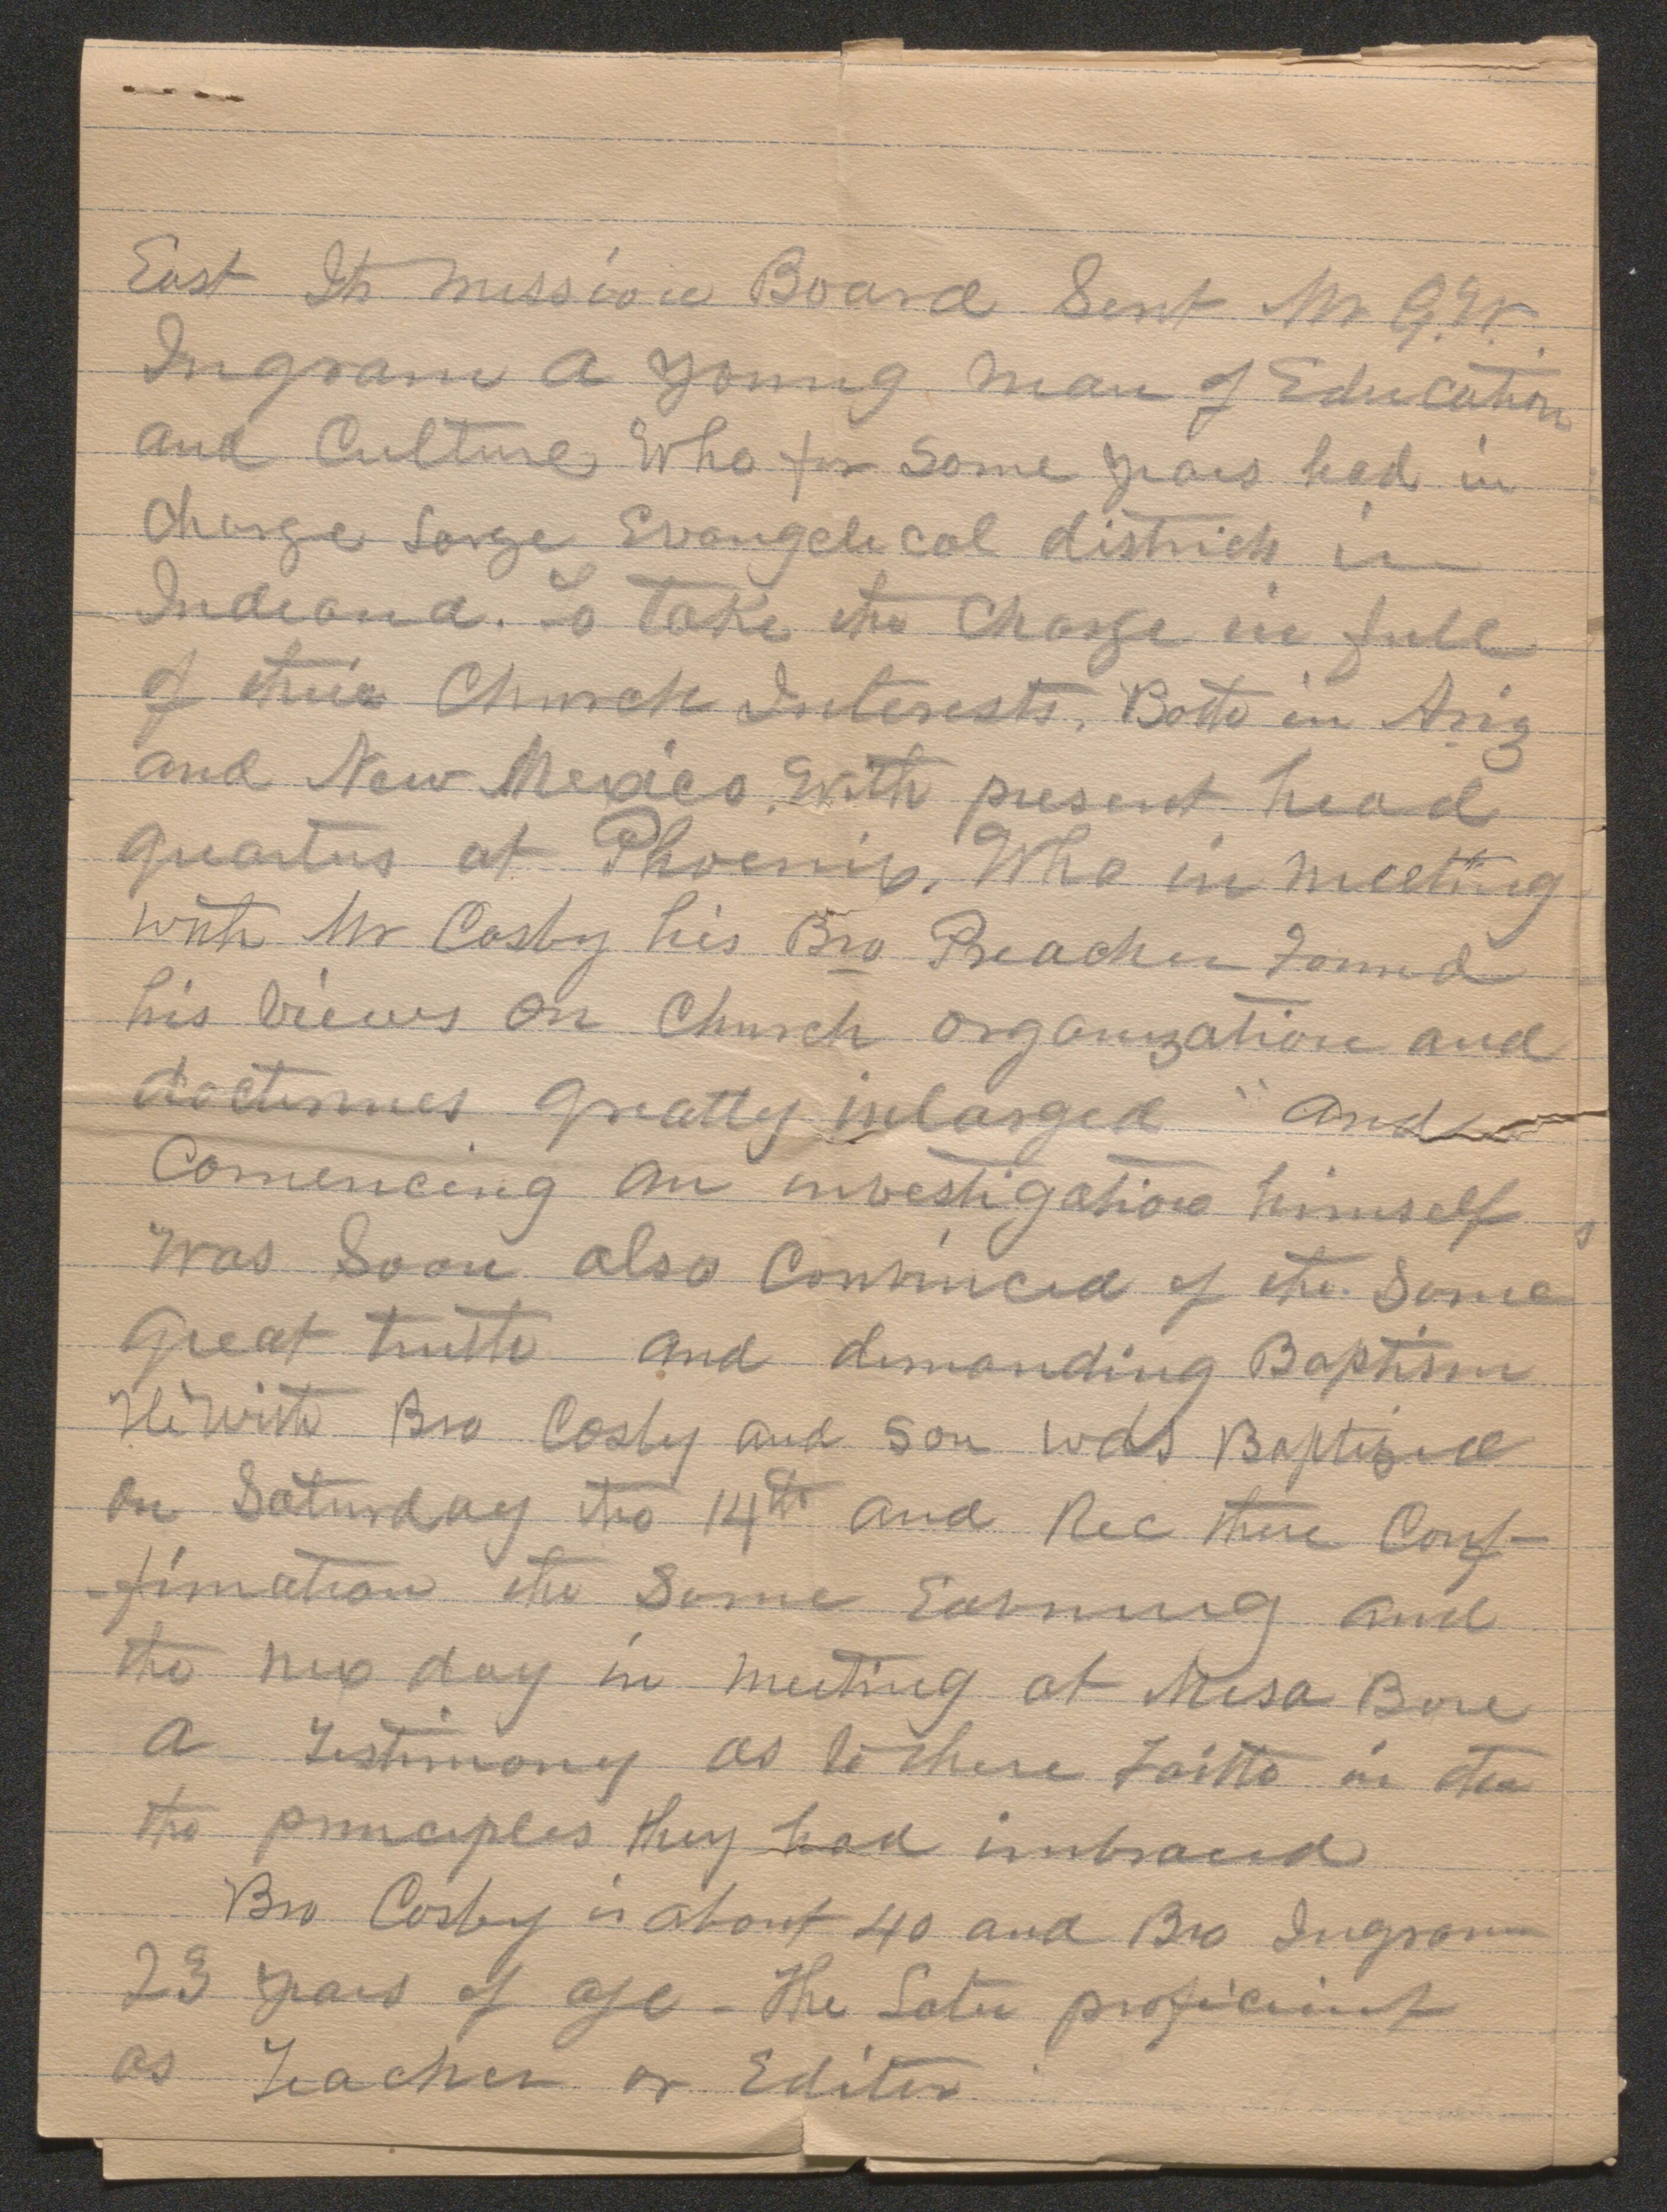 East Its mission Board Sent Mr G.W.
Ingram a young man of Education
and Culture, Who for Some years had in
Charge Large Evangelical districk in
Indiana. To Take the Charge in full
of their Church Interests, Both in Ariz
and New Mexico. With present head
quarters at Phoenix, Who in meeting
with Mr Cosby his Bro Preacher Found
his Views on Church organization and
doctrines greatly inlarged and
Comencing an investigation himself
was Soon also Convinced of the Same
great truth and demanding Baptism
He with Bro Cosby and son was Baptized
on Saturday the 14th and Rec there Conf-
-fimation the Same Eavning and
the nex day in meeting at Mesa Bore
a Testimony as to there Faith in the
the principles they had imbraced
Bro Cosby is about 40 and Bro Ingram
23 years of age - The Later proficient
as Teacher or Editor